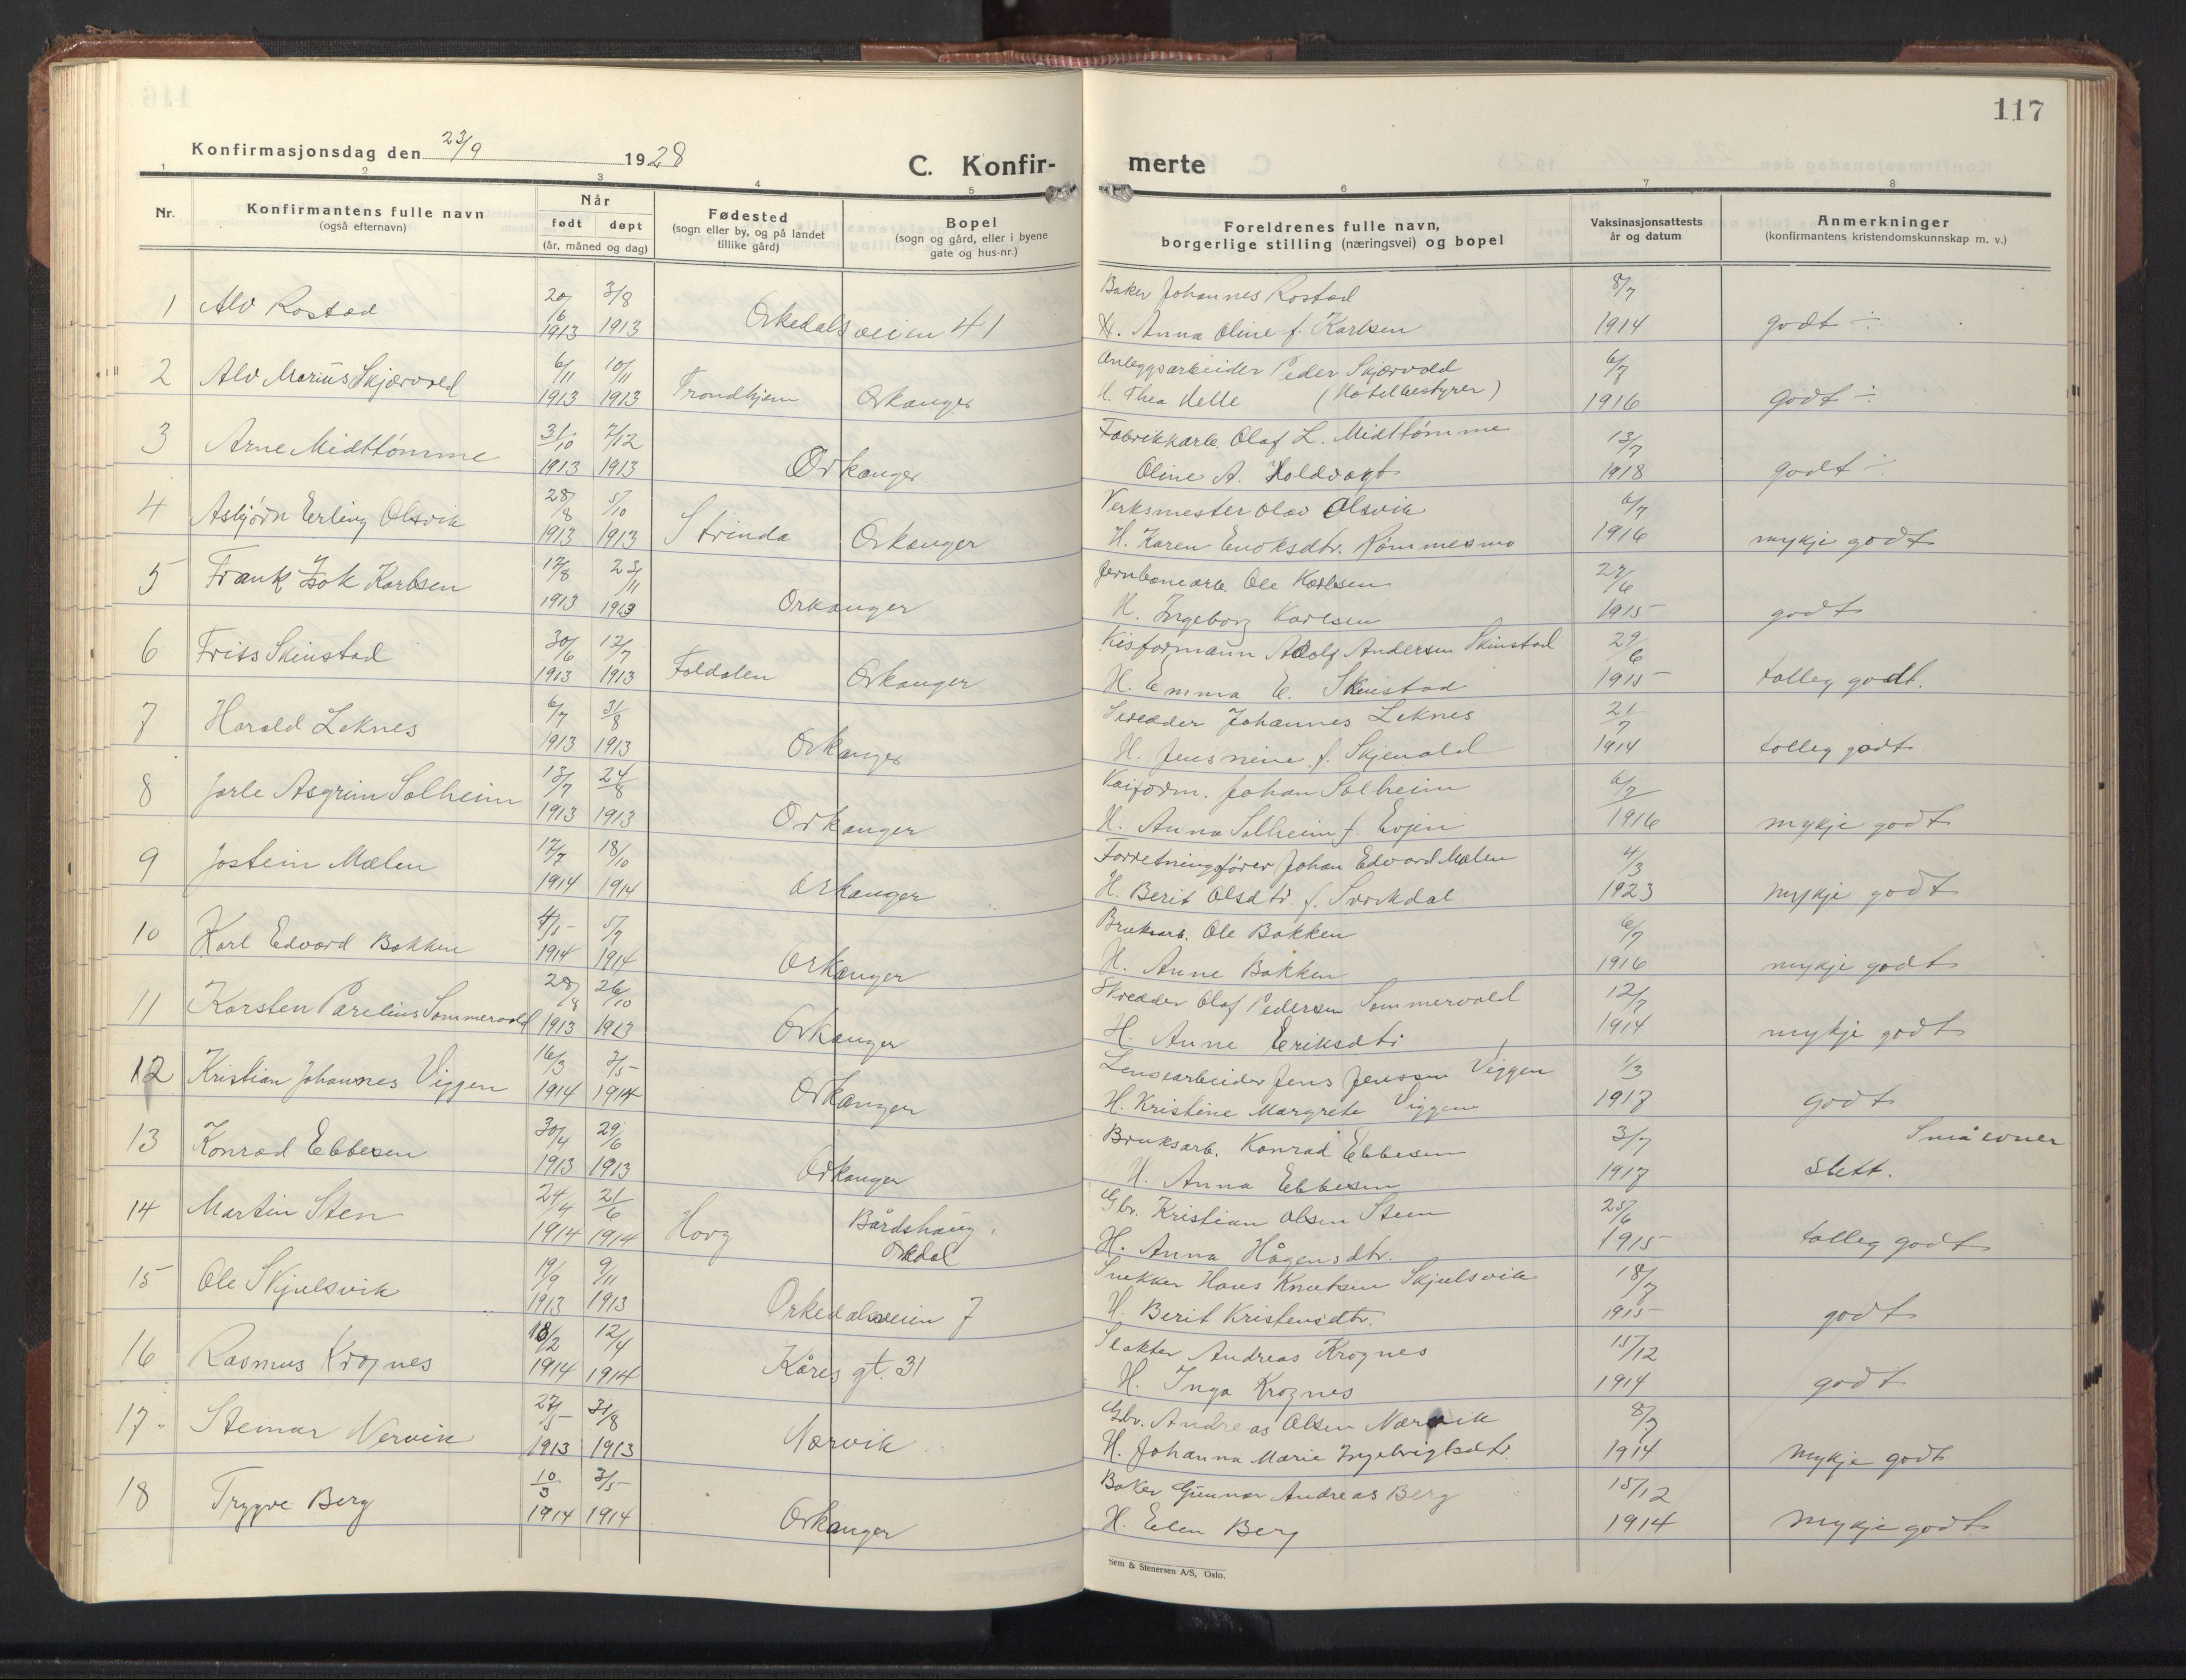 117
Konfirmasjonsdag den 23/9 1928
C. Konfir-
merte
1 2 3 4 5 6 7 8
Nr.
Konfirmantens fulle navn
(også efternavn)
Når
født døpt
(år, måned og dag)
Fødested
(sogn eller by, og på landet
tillike gård)
Bopel
(sogn og gård, eller i byene
gate og hus-nr.)
Foreldrenes fulle navn,
borgerlige stilling (næringsvei) og bopel
Vaksinasjonsattests
år og datum
Anmerkninger
(konfirmantens kristendomskunnskap m. v.)
1 Alv Rostad 20/6 1913 3/8 1913 Orkedalsveien 41
Baker Johannes Rostad 8/7
H. Anna Oline f. Karlsen 1914 godt ÷
2 Alv Marius Skjærvold 6/11 1913 10/11 1913 Trondhjem Orkanger
Anleggsarbeider Peder Skjærvold 6/7
H. Thea Melle (Hotellbestyrer) 1916 godt ÷
3 Arne Midttømme 31/10 1913 7/12 1913 Orkanger
Fabrikkarb. Olaf L. Midttømme 13/7
Oline A. Holdvagt 1918 godt ÷
4 Asbjørn Erling Olsvik 28/8 1913 5/10 1913 Strinda Orkanger
Verksmester Olav Olsvik 6/7
H. Karen Enoksdtr. Rømmesmo 1916 mykje godt
5 Frank Isak Karlsen 17/8 1913 23/11 1913 Orkanger
Jernbanearb. Ole Karlsen 27/6
H. Ingeborg Karlsen 1915 godt
6 Frits Skinstad 30/6 1913 13/7 1913 Foldalen Orkanger
Kisformann Adolf Andersen Skinstad 29/6
H. Emma E. Skinstad 1915 tolleg godt.
7 Harald Leknes 6/7 1913 31/8 1913 Orkanger
Skredder Johannes Leknes 21/7
H. Jensine f. Skjenald 1914 tolleg godt
8 Jarle Asgrim Solheim 13/7 1913 24/8 1913 Orkanger
Kaiform. Johan Solheim 6/7
H. Anna Solheim f. Evjen 1916 mykje godt
9 Jostein Mælen 17/7 1914 18/10 1914 Orkanger
Forretningsfører Johan Edvard Mælen 4/3
H. Berit Olsdtr. f. Svorkdal 1923 mykje godt
10 Karl Edvard Bakken 4/5 1914 5/7 1914 Orkanger
Bruksarb. Ole Bakken 6/7
H. Anne Bakken 1916 mykje godt
11 Karsten Parelius Sommervold 28/8 1913 26/10 1913 Orkanger
Skredder Olaf Pedersen Sommervold 12/7
H. Anne Eriksdtr 1914 mykje godt
12 Kristian Johannes Viggen 16/3 1914 3/5 1914 Orkanger
Lensearbeider Jens Jenssen Viggen 1/3
H. Kristine Margrete Viggen 1917 godt
13 Konrad Ebbesen 30/4 1913 29/6 1913 Orkanger
Bruksarb. Konrad Ebbesen 3/7 Små evner
H. Anna Ebbesen 1917 slett.
14 Martin Sten 24/4 1914 21/6 1914 Hovg Bårdshaug, Orkdal
Gbr. Kristian Olsen Steen 25/6
H. Anna Hågensdtr. 1915 tolleg godt
15 Ole Skjulsvik 19/9 1913 9/11 1913 Orkedalsveien 7
Snekker Hans Knutsen Skjulsvik 18/7
H. Berit Kristensdtr. 1915 godt
16 Rasmus Krognes 18/2 1914 12/4 1914 Kåres gt. 31
Slakter Andreas Krognes 15/12
H. Inga Krognes 1914 godt
17 Steinar Nervik 27/5 1913 31/8 1913 Nærvik
Gbr. Andreas Olsen Nærvik 8/7
H. Johanna Marie Ingebrigtsdtr. 1914 mykje godt
18 Trygve Berg 10/3 1914 3/5 1914 Orkanger
Baker Gunnar Andreas Berg 15/12
H. Elen Berg 1914 mykje godt
Sem & Stenersen A/S, Oslo.